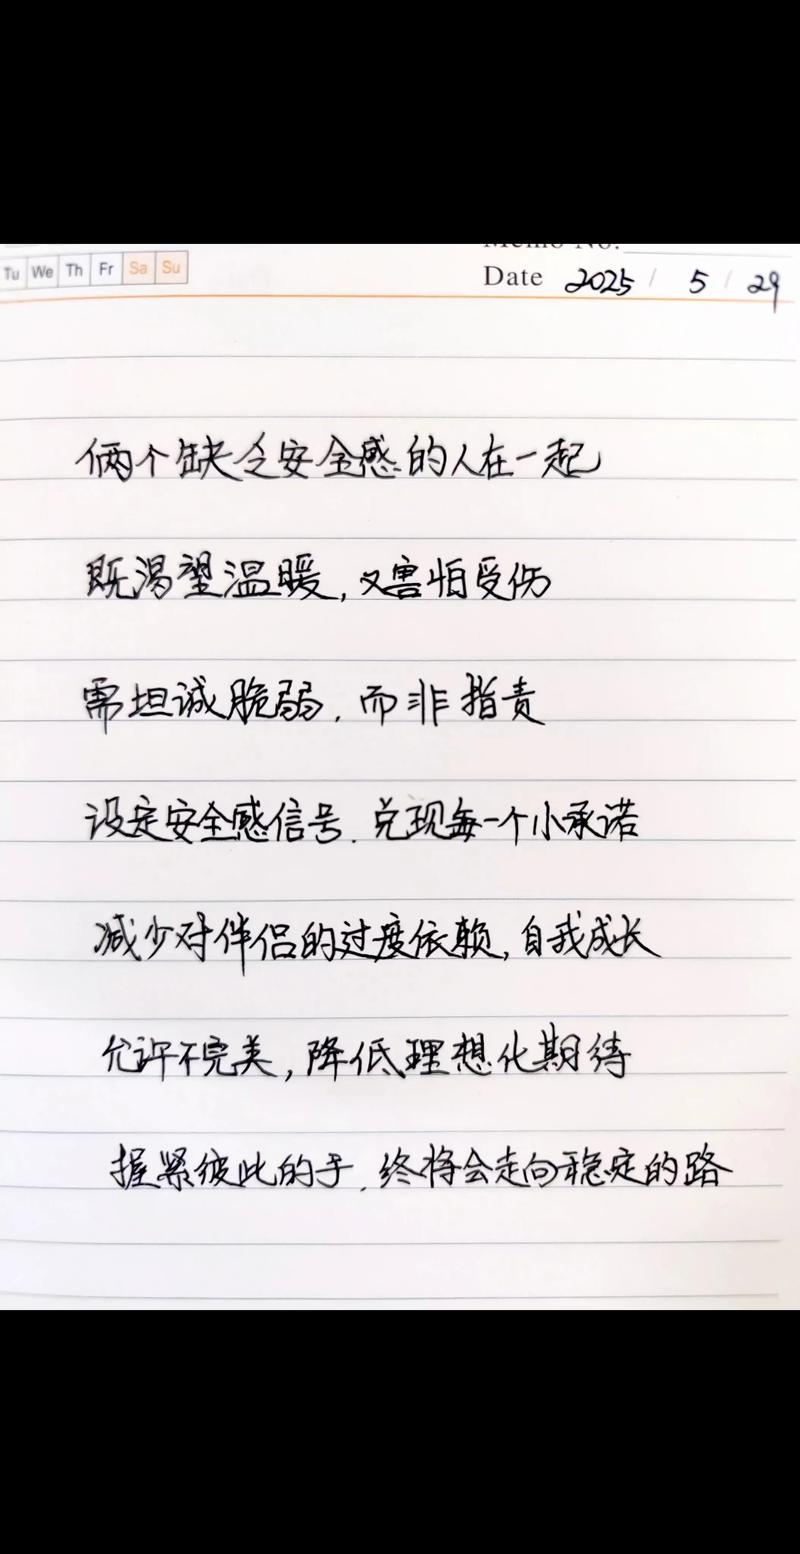 Tu We Th Fr Sa Su
Memo No.
Date 2025 / 5 / 29
俩个缺乏安全感的人在一起
既渴望温暖,又害怕受伤
需坦诚脆弱,而非指责
设定安全感信号,兑现每一个小承诺
减少对伴侣的过度依赖,自我成长
允许不完美,降低理想化期待
握紧彼此的手,终将会走向稳定的路